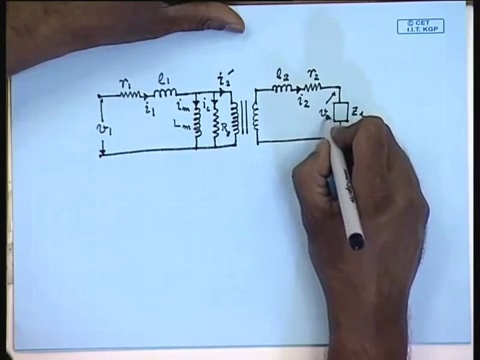 © CET
I.I.T. KGP
r₁ l₁ i₂′ l₂ r₂
i₁ iₘ i꜀ i₂
v₁ Lₘ v₂